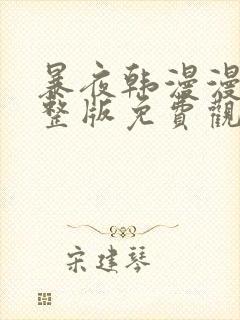 暴夜韩漫漫
整版免費觀
宋建琴